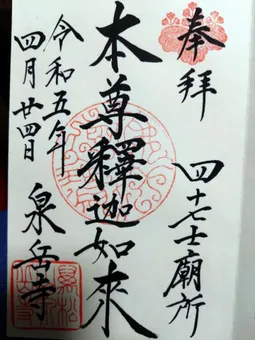 奉拜
四十七士廟所
本尊釋迦如來
令和五年
四月廿四日
泉岳寺